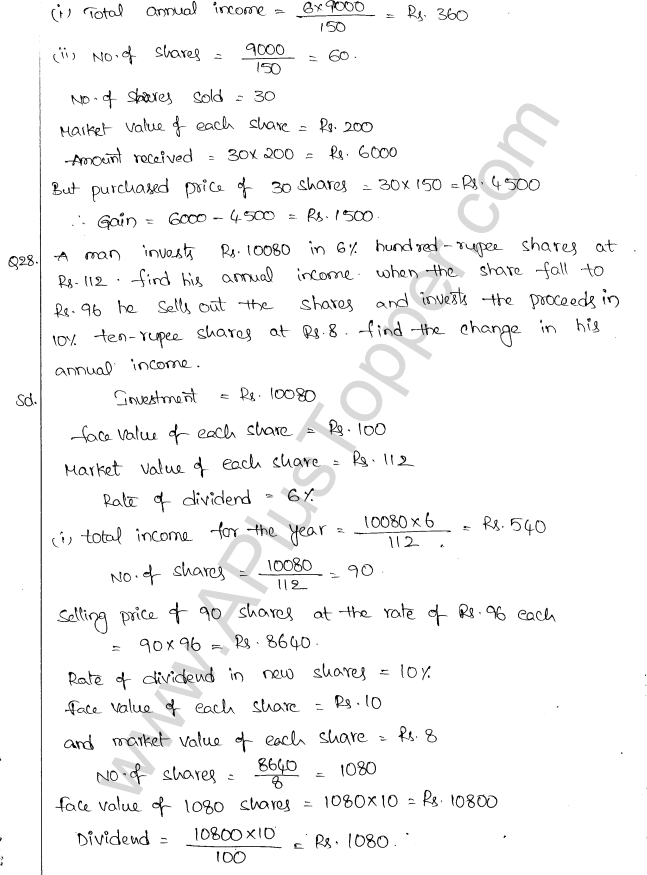 (i) Total annual income = 6×9000/150 = Rs. 360
(ii) No. of shares = 9000/150 = 60.
No. of shares sold = 30
Market value of each share = Rs. 200
Amount received = 30×200 = Rs. 6000
But purchased price of 30 shares = 30×150 = Rs. 4500
∴ Gain = 6000 – 4500 = Rs. 1500.
Q28. A man invests Rs. 10080 in 6% hundred-rupee shares at
Rs. 112. find his annual income. when the share fall to
Rs. 96 he sells out the shares and invests the proceeds in
10% ten-rupee shares at Rs. 8. find the change in his
annual income.
Sol. Investment = Rs. 10080
face value of each share = Rs. 100
Market value of each share = Rs. 112
Rate of dividend = 6%
(i) total income for the year = 10080×6/112 = Rs. 540
No. of shares = 10080/112 = 90
Selling price of 90 shares at the rate of Rs. 96 each
= 90×96 = Rs. 8640.
Rate of dividend in new shares = 10%
face value of each share = Rs. 10
and market value of each share = Rs. 8
No. of shares = 8640/8 = 1080
face value of 1080 shares = 1080×10 = Rs. 10800
Dividend = 10800×10/100 = Rs. 1080.
www.APlusTopper.com